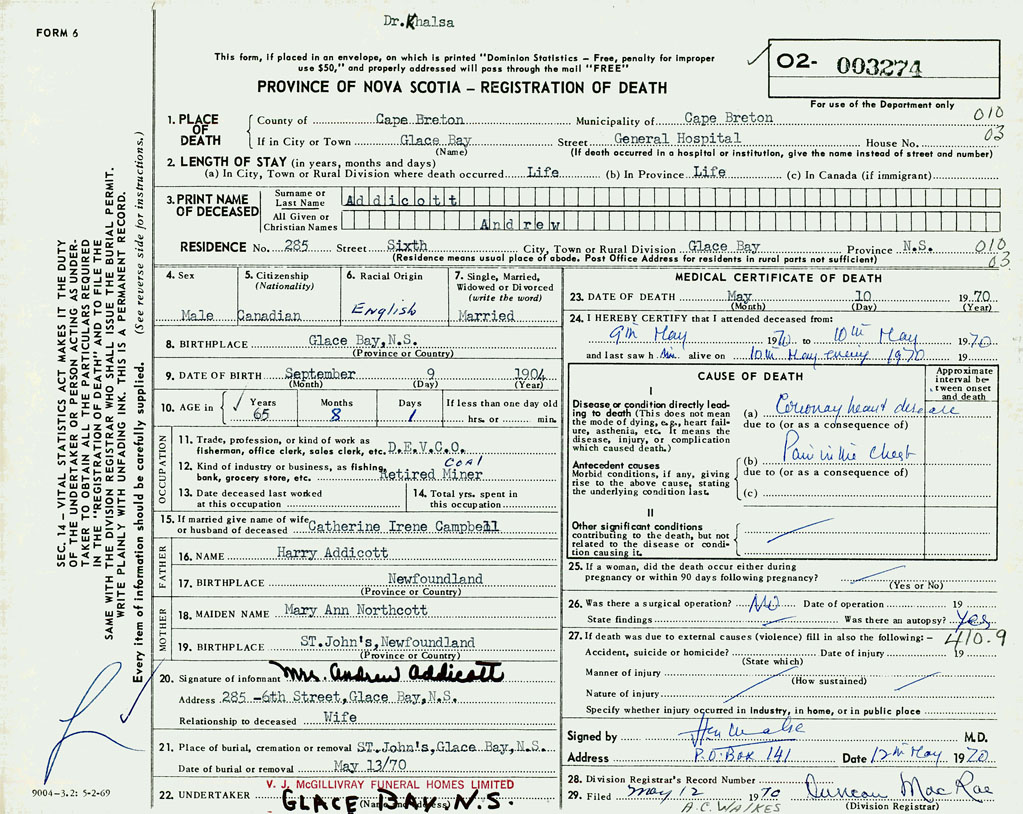 Dr. Khalsa
FORM 6
This form, if placed in an envelope, on which is printed "Dominion Statistics – Free, penalty for improper
use $50," and properly addressed will pass through the mail "FREE"
02- 003274
For use of the Department only
PROVINCE OF NOVA SCOTIA – REGISTRATION OF DEATH
SEC. 14 – VITAL STATISTICS ACT MAKES IT THE DUTY
OF THE UNDERTAKER OR PERSON ACTING AS UNDER-
TAKER TO OBTAIN ALL THE PARTICULARS REQUIRED
IN THE "REGISTRATION OF DEATH" AND TO FILE THE
SAME WITH THE DIVISION REGISTRAR WHO SHALL ISSUE THE BURIAL PERMIT.
WRITE PLAINLY WITH UNFADING INK. THIS IS A PERMANENT RECORD.
Every item of information should be carefully supplied. (See reverse side for instructions.)
1. PLACE OF DEATH County of Cape Breton Municipality of Cape Breton 010
If in City or Town Glace Bay Street General Hospital House No. 03
(Name) (If death occurred in a hospital or institution, give the name instead of street and number)
2. LENGTH OF STAY (in years, months and days)
(a) In City, Town or Rural Division where death occurred Life (b) In Province Life (c) In Canada (if immigrant)
3. PRINT NAME OF DECEASED Surname or Last Name Addicott
All Given or Christian Names Andrew
RESIDENCE No. 285 Street Sixth City, Town or Rural Division Glace Bay Province N.S. 010
(Residence means usual place of abode. Post Office Address for residents in rural parts not sufficient) 03
4. Sex 5. Citizenship (Nationality) 6. Racial Origin 7. Single, Married, Widowed or Divorced (write the word)
Male Canadian English Married
8. BIRTHPLACE Glace Bay, N.S.
(Province or Country)
9. DATE OF BIRTH September 9 1904
(Month) (Day) (Year)
10. AGE in Years Months Days If less than one day old
65 8 1 hrs. or min.
OCCUPATION
11. Trade, profession, or kind of work as
fisherman, office clerk, sales clerk, etc. D.E.V.C.O.
12. Kind of industry or business, as fishing, COAL
bank, grocery store, etc. Retired Miner
13. Date deceased last worked at this occupation
14. Total yrs. spent in this occupation
15. If married give name of wife
or husband of deceased Catherine Irene Campbell
FATHER
16. NAME Harry Addicott
17. BIRTHPLACE Newfoundland
(Province or Country)
MOTHER
18. MAIDEN NAME Mary Ann Northcott
19. BIRTHPLACE ST. John's, Newfoundland
(Province or Country)
20. Signature of informant Mrs. Andrew Addicott
Address 285 -6th Street, Glace Bay, N.S.
Relationship to deceased Wife
21. Place of burial, cremation or removal ST. John's, Glace Bay, N.S.
Date of burial or removal May 13/70
V. J. McGILLIVRAY FUNERAL HOMES LIMITED
22. UNDERTAKER GLACE BAY, N.S.
(Name and Address)
9004-3.2: 5-2-69
MEDICAL CERTIFICATE OF DEATH
23. DATE OF DEATH May 10 1970
(Month) (Day) (Year)
24. I HEREBY CERTIFY that I attended deceased from:
9th May 1970 to 10th May 1970
and last saw h im alive on 10th May 1970 19
CAUSE OF DEATH
Approximate interval between onset and death
I
Disease or condition directly lead-
ing to death (This does not mean
the mode of dying, e.g., heart fail-
ure, asthenia, etc. It means the
disease, injury, or complication
which caused death.)
(a) Coronay heart disease
due to (or as a consequence of)
Antecedent causes
Morbid conditions, if any, giving
rise to the above cause, stating
the underlying condition last.
(b) Pain in the Chest
due to (or as a consequence of)
(c)
II
Other significant conditions
contributing to the death, but not
related to the disease or condi-
tion causing it.
25. If a woman, did the death occur either during
pregnancy or within 90 days following pregnancy?
(Yes or No)
26. Was there a surgical operation? No Date of operation 19
State findings Was there an autopsy? Yes
27. If death was due to external causes (violence) fill in also the following:– 410.9
Accident, suicide or homicide? Date of injury 19
(State which)
Manner of injury
(How sustained)
Nature of injury
Specify whether injury occurred in industry, in home, or in public place
Signed by M.D.
Address P.O. Box 141 Date 12th May 1970
28. Division Registrar's Record Number
29. Filed May 12 1970 Duncan MacRae
A.C. WALKES (Division Registrar)